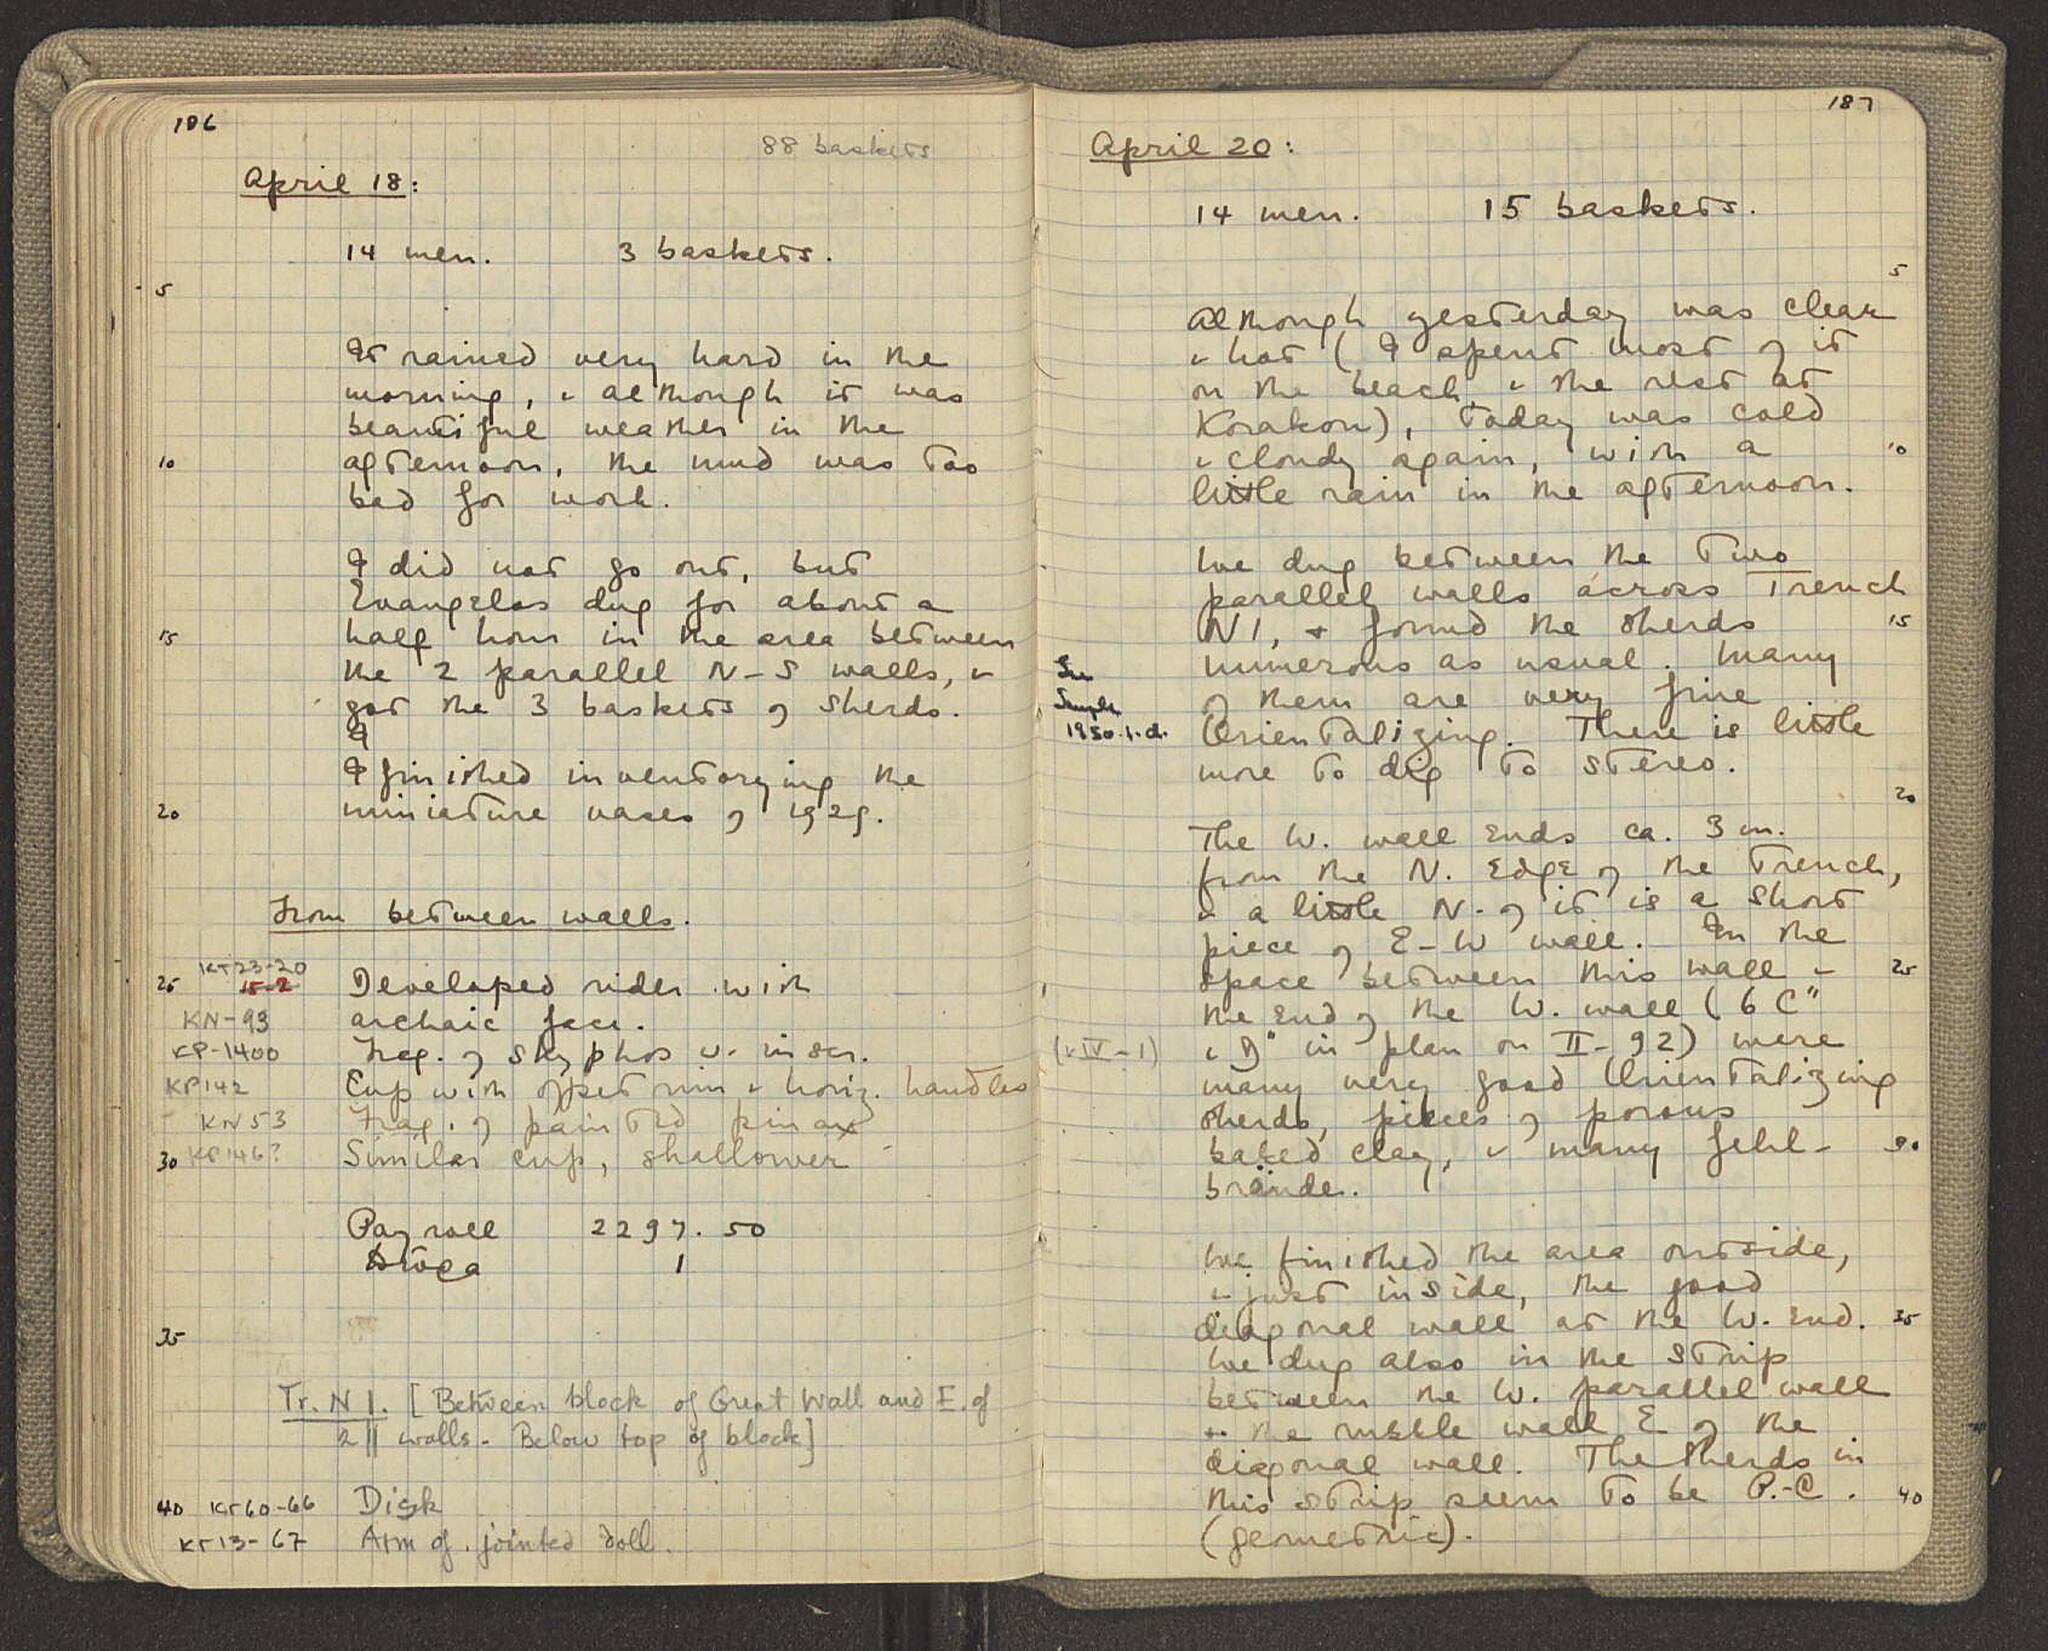 186
88 baskets
April 18:
14 men. 3 baskets.
5
It rained very hard in the
morning, & although it was
beautiful weather in the
10 afternoon, the mud was too
bad for work.
I did not go out, but
Evangelos dug for about a
15 half hour in the area between
the 2 parallel N-S walls, &
got the 3 baskets of sherds.
I
I finished inventorying the
20 miniature vases of 1929.
From between walls.
KT23-20
25 15-2 Developed rider with
KN-93 archaic face.
KP-1400 Frag. of skyphos w. inscr.
KP142 Cup with offset rim & horiz. handles
KN53 Frag. of painted pinax
30 KP146? Similar cup, shallower
Payroll 2297.50
1
35
Tr. N 1. [Between block of Great Wall and E. of
2 || walls - Below top of block]
40 KT60-66 Disk
KT13-67 Arm of jointed doll.
187
April 20:
14 men. 15 baskets.
5
Although yesterday was clear
& hot (I spent most of it
on the beach & the rest at
Korakou), today was cold
& cloudy again, with a 10
little rain in the afternoon.
We dug between the two
parallel walls across Trench
N1, + found the sherds 15
numerous as usual. Many
See
of them are very fine
Sample
1950.1.d. Orientalizing. There is little
more to dig to stereo.
20
The W. wall ends ca. 3 m.
from the N. edge of the trench,
& a little N. of it is a short
piece of E-W wall. In the
space between this wall & 25
the end of the W. wall (6 C"
(& IV-1) & D" in plan on II-92) were
many very good Orientalizing
sherds, pieces of porous
baked clay, & many Fehl- 30
brände.
We finished the area outside,
& just inside, the good
diagonal wall at the W. end. 35
We dug also in the strip
between the W. parallel wall
& the rubble wall E of the
diagonal wall. The sherds in
this strip seem to be P.-C. 40
(geometric).